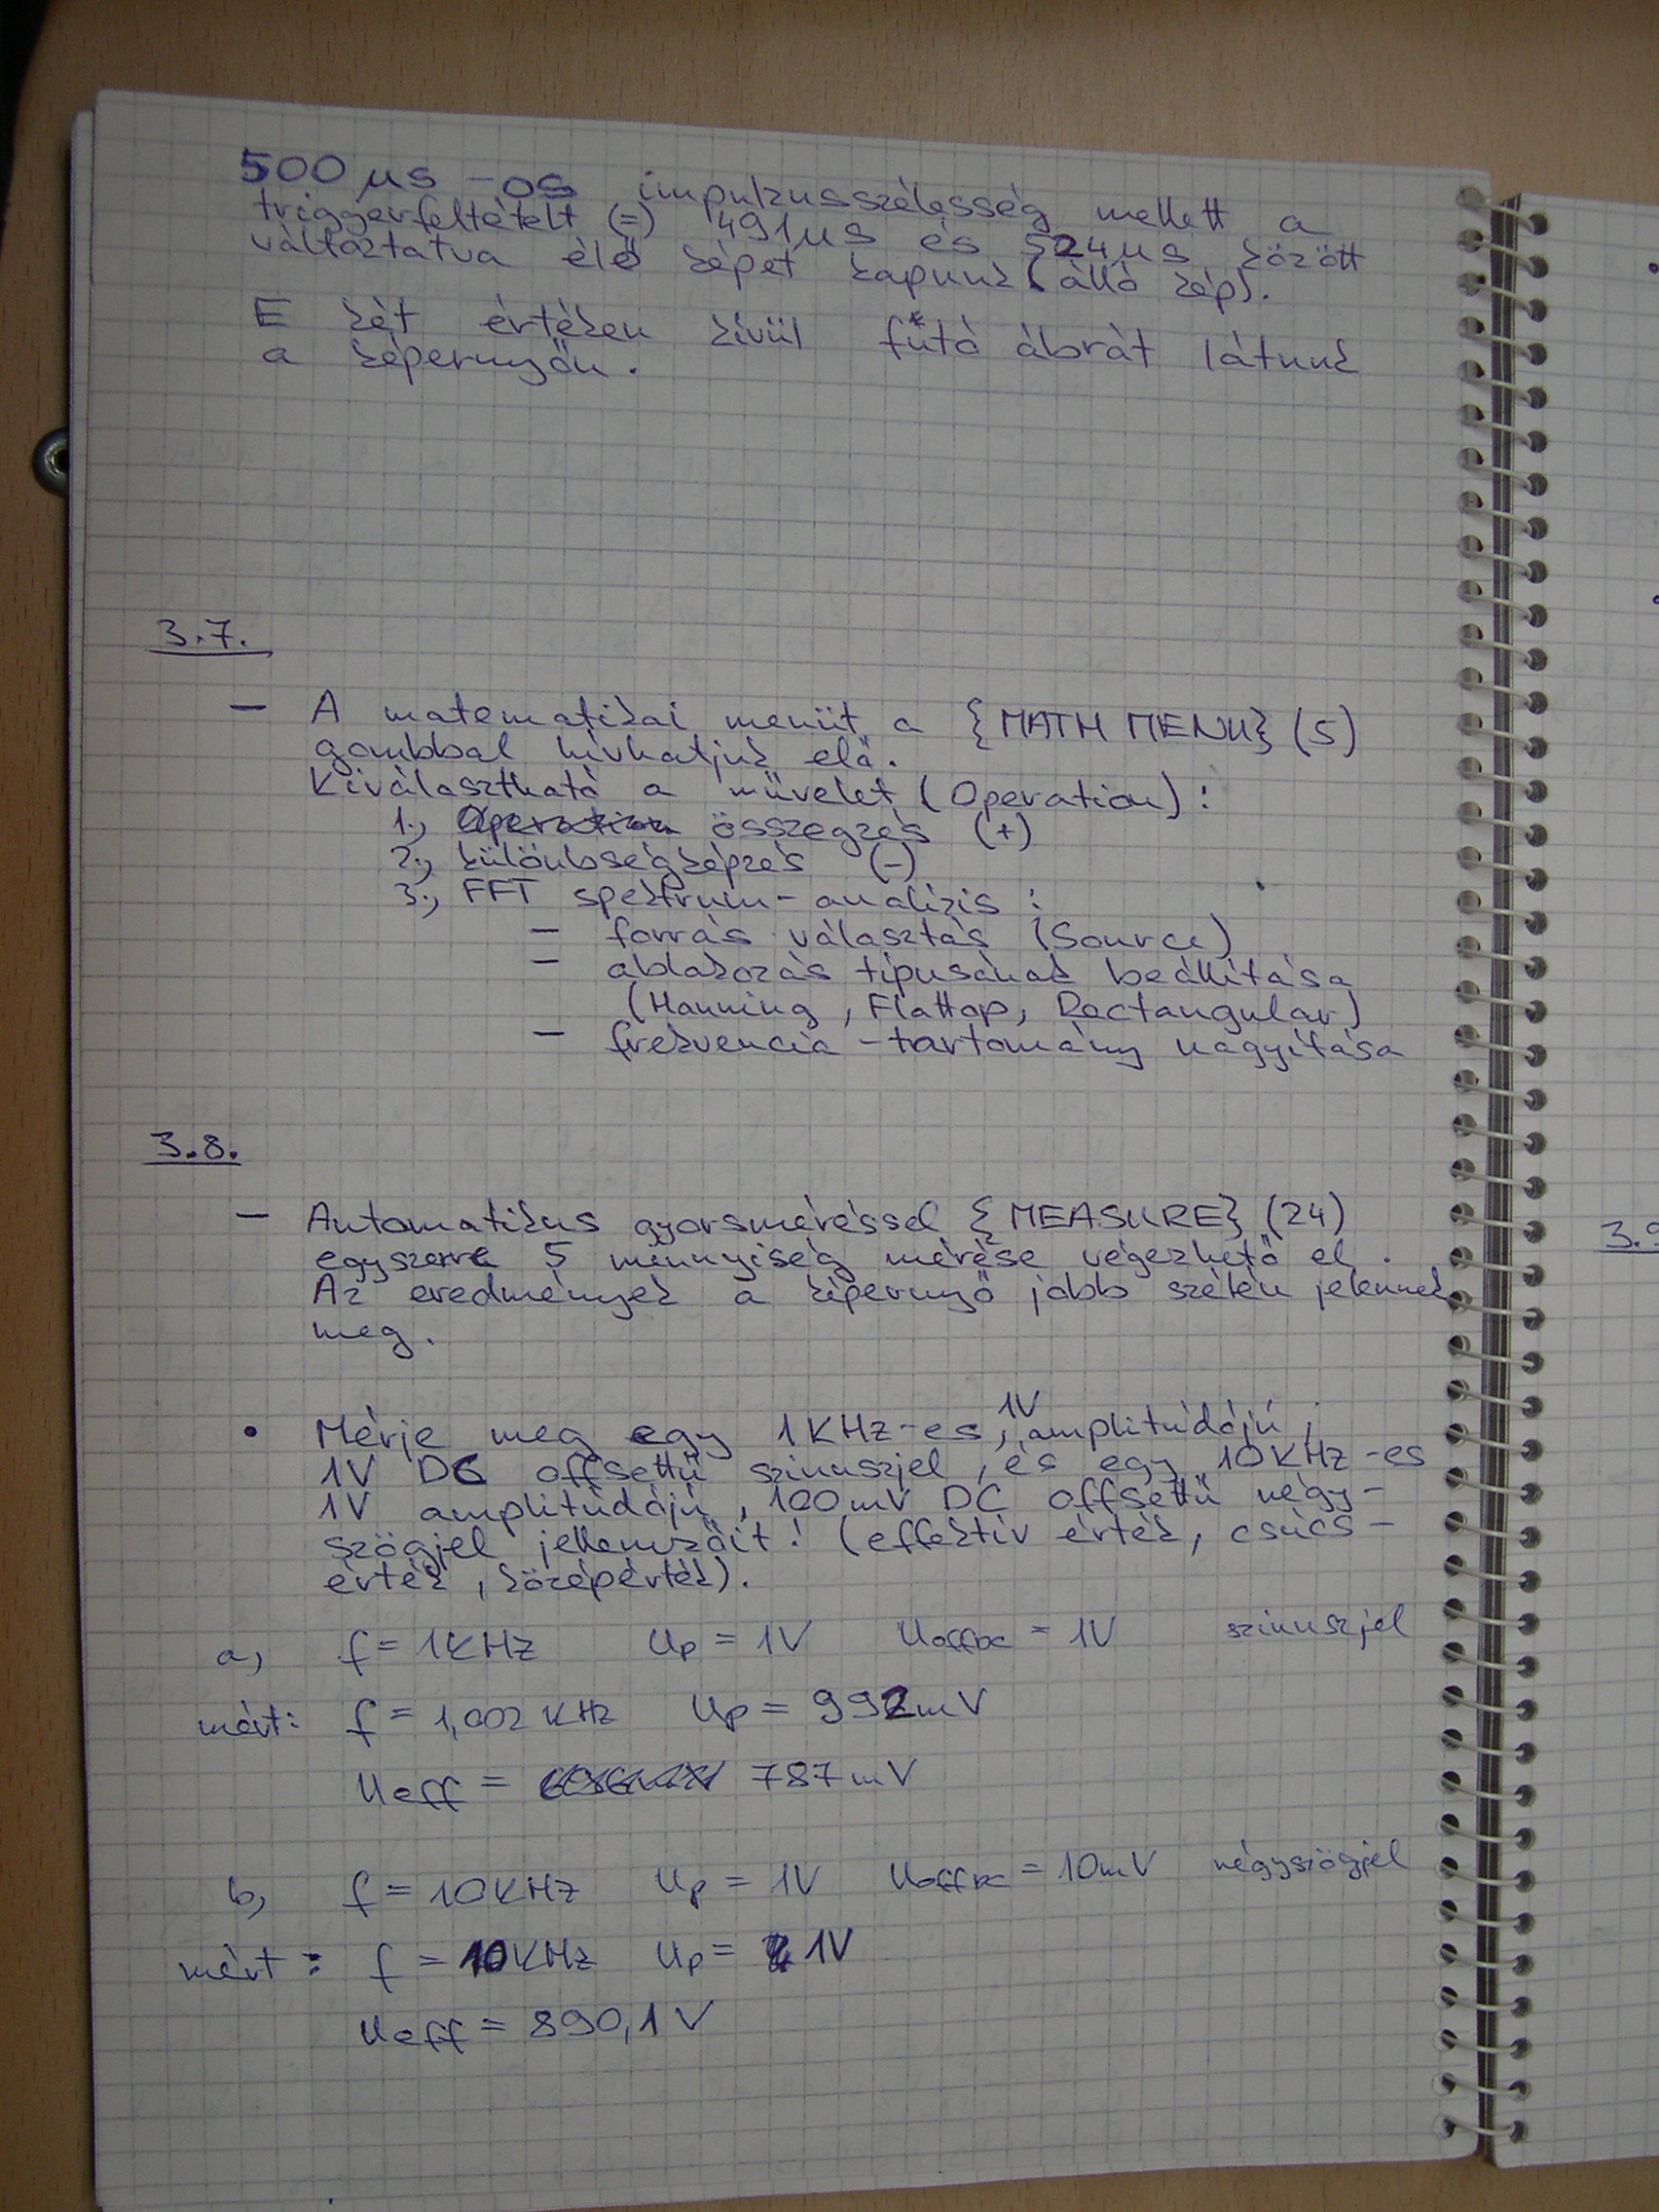 500 μs -os impulzusszélesség mellett a
triggerfeltételt (=) 491 μs és 524 μs között
változtatva élő képet kapunk (álló kép).
E két értéken kívül futó ábrát látunk
a képernyőn.
3.7.
- A matematikai menüt a {MATH MENU} (5)
gombbal hívhatjuk elő.
Kiválasztható a művelet (Operation):
1., Operation összegzés (+)
2., különbségképzés (-)
3., FFT spektrum-analízis :
- forrás választás (Source)
- ablakozás típusának beállítása
(Hanning, Flattop, Rectangular)
- frekvencia-tartomány nagyítása
3.8.
- Automatikus gyorsméréssel {MEASURE} (24)
egyszerre 5 mennyiség mérése végezhető el.
Az eredmények a képernyő jobb szélén jelennek
meg.
• Mérje meg egy 1KHz-es, 1V amplitúdójú,
1V DC offsettű szinuszjel, és egy 10KHz-es
1V amplitúdójú, 100mV DC offsettű négy-
szögjel jellemzőit! (effektív érték, csúcs-
érték, középérték).
a, f = 1KHz Up = 1V UoffDC = 1V szinuszjel
mért: f = 1,002 KHz Up = 992mV
Ueff = 787mV
b, f = 10KHz Up = 1V UoffDC = 10mV négyszögjel
mért: f = 10KHz Up = 1V
Ueff = 890,1V
3.9